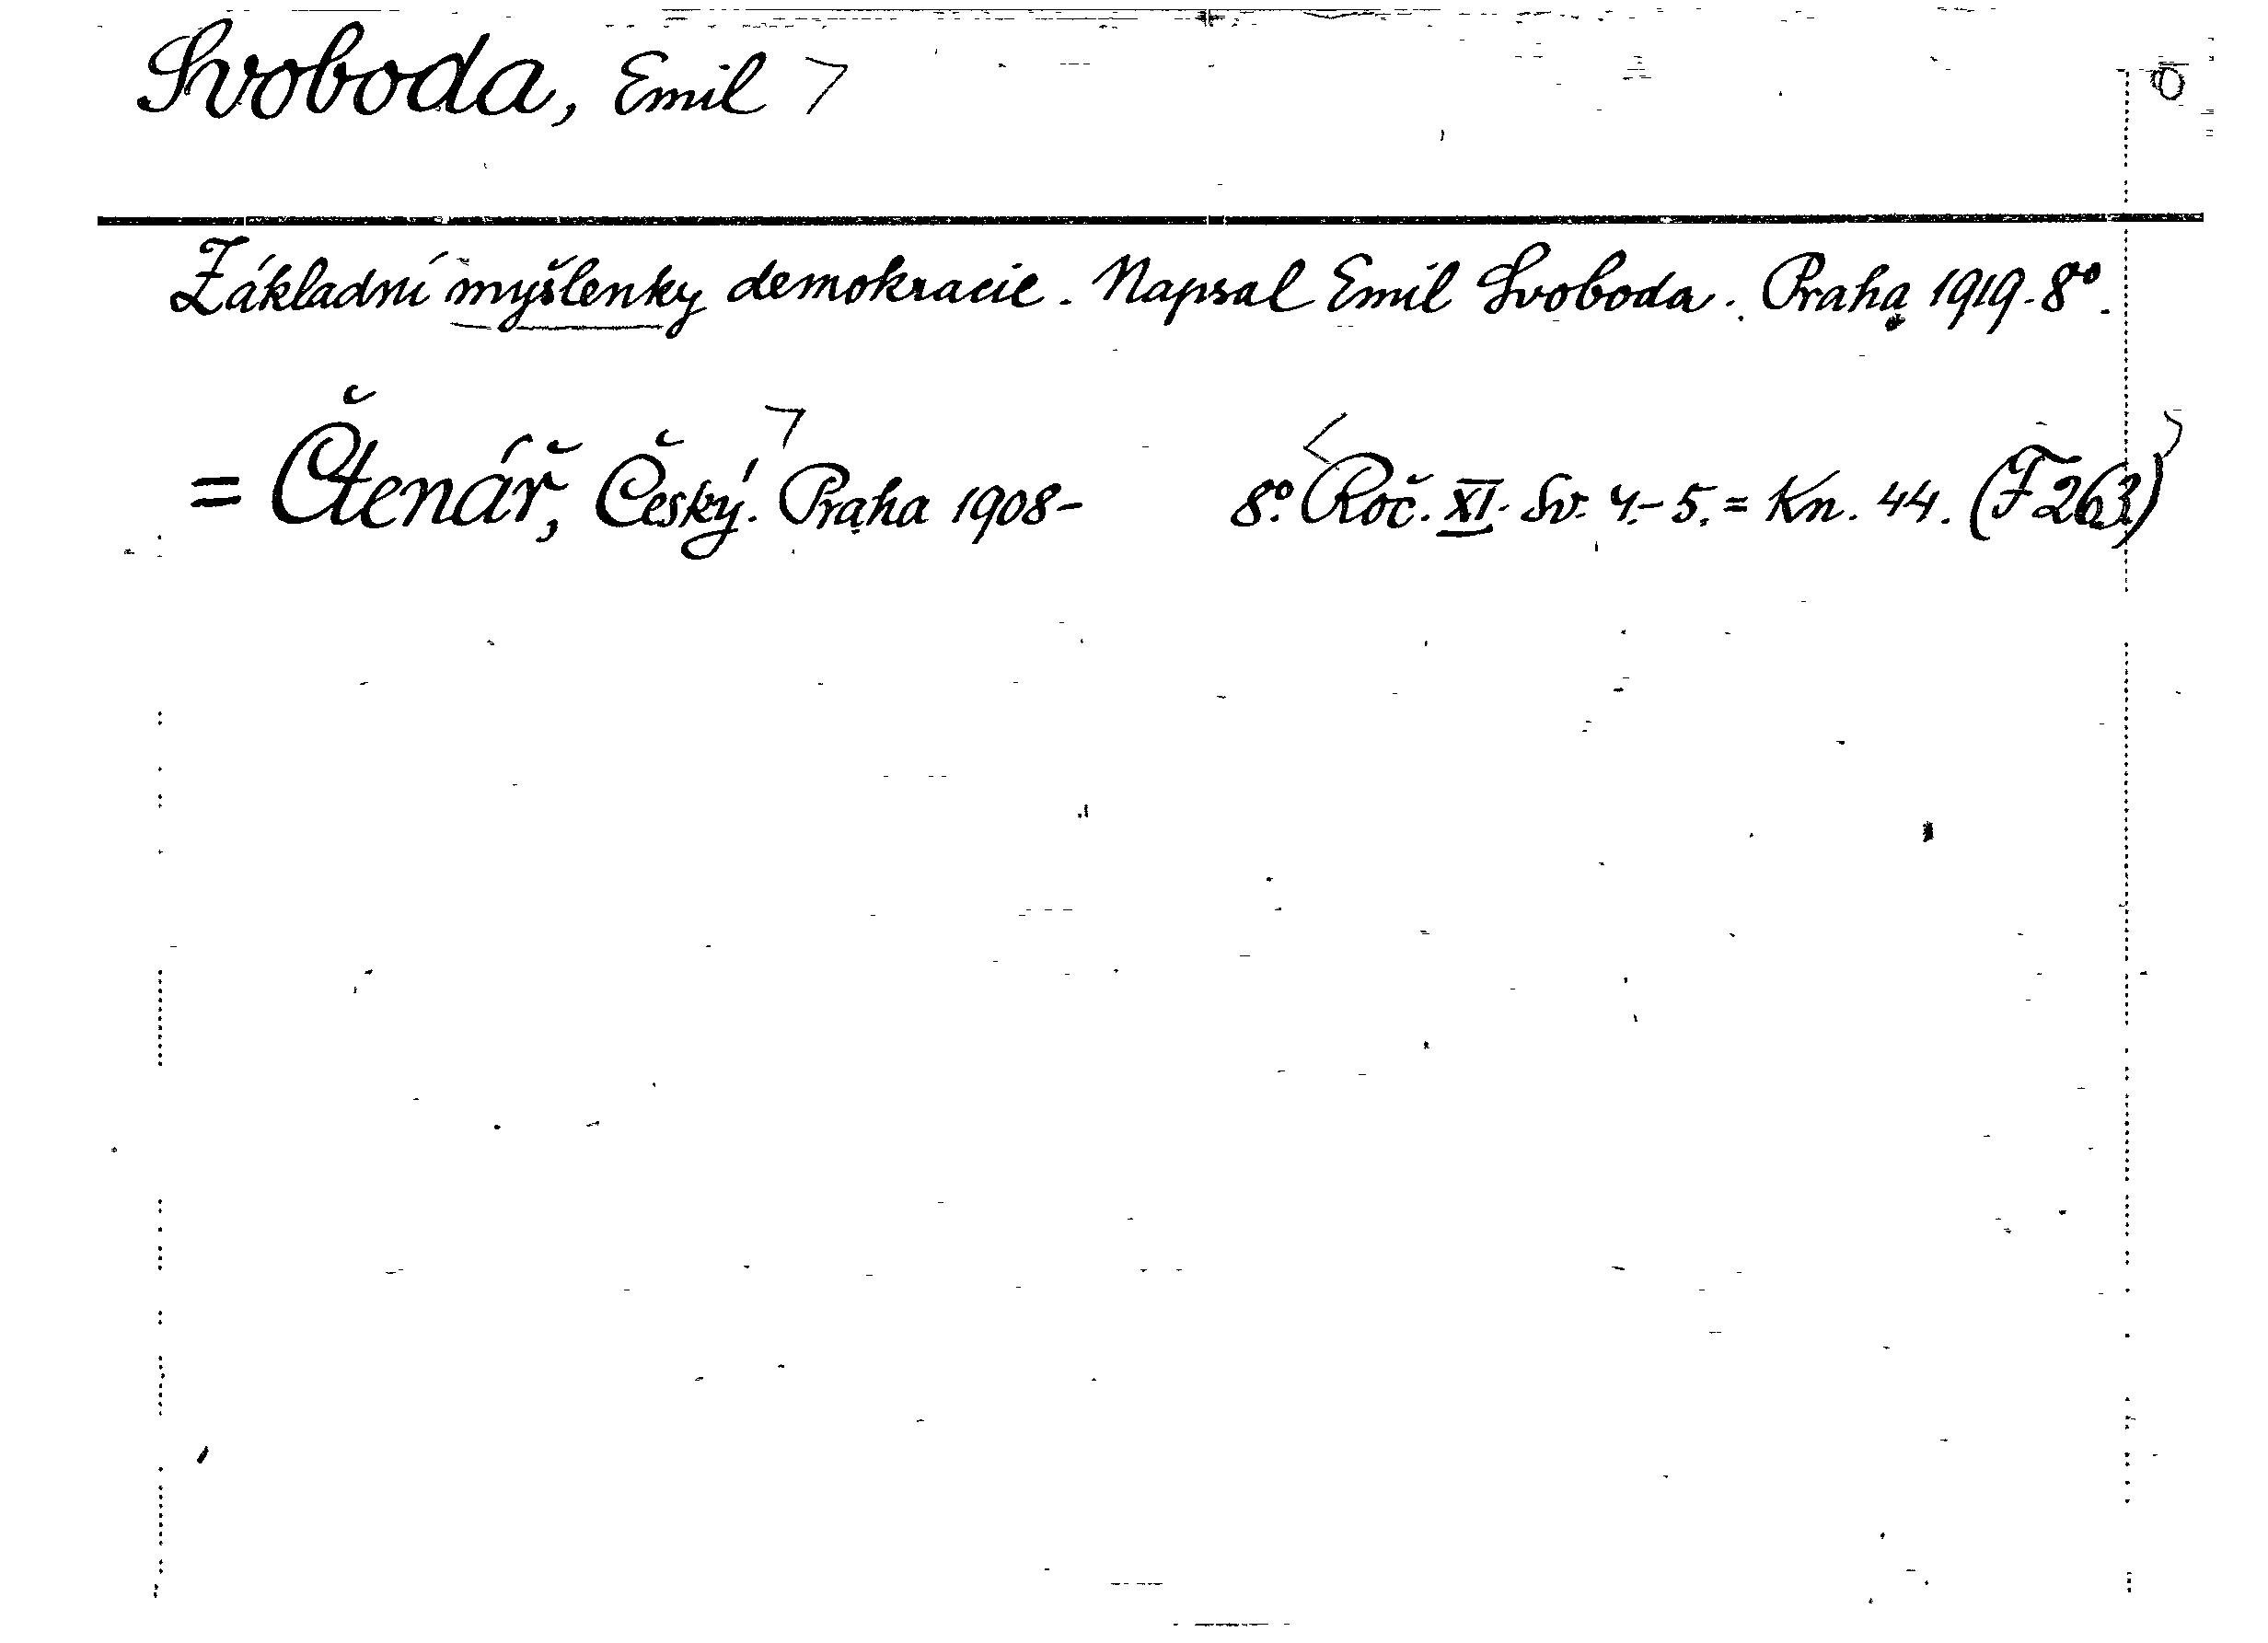 Svoboda, Emil
Základní myšlenky demokracie. Napsal Emil Svoboda. Praha 1919. 8°.
= Čtenář, Český. Praha 1908- 8°. Roč. XI. Sv. 4.-5. = Kn. 44. (F 263)